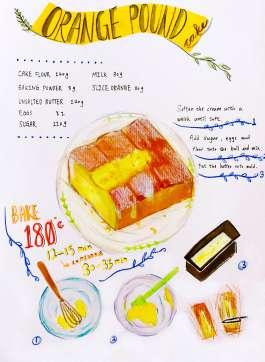 ORANGE POUND
cake
CAKE FLOUR 200g
BAKING POWDER 3g
UNSALTED BUTTER 200g
EGGS 82
SUGAR 120g
MILK 30g
SLICE ORANGE 80g
Soften the cream with a
whisk until soft.
Add sugar, eggs and
flour into the bowl and milk.
Put the batter into mold.
BAKE
180°C
12-15 min
30-35 min
1
2
3